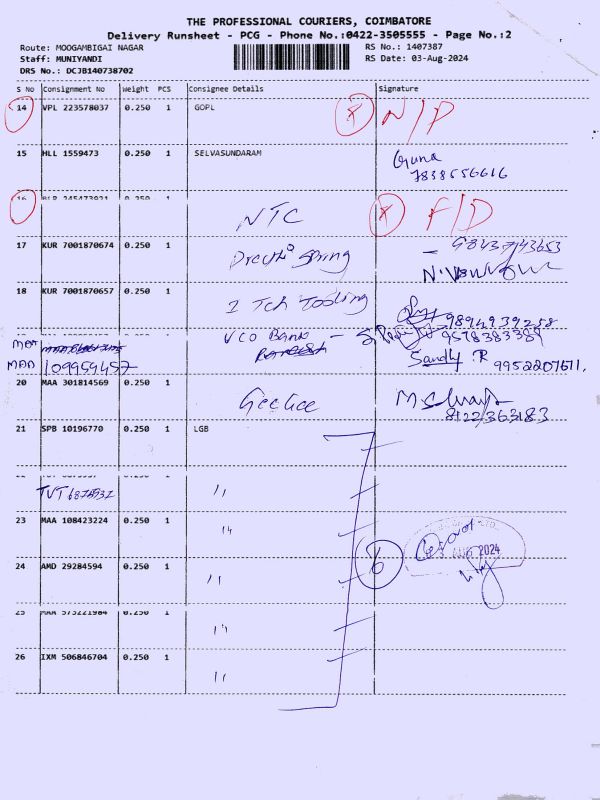 THE PROFESSIONAL COURIERS, COIMBATORE
Delivery Runsheet - PCG - Phone No.:0422-3505555 - Page No.:2
Route: MOOGAMBIGAI NAGAR RS No.: 1407387
Staff: MUNIYANDI RS Date: 03-Aug-2024
DRS No.: DCJB140738702
S No Consignment No Weight PCS Consignee Details Signature
14 VPL 223578037 0.250 1 GOPL N/P
15 HLL 1559473 0.250 1 SELVASUNDARAM Guna
7838656616
16 0.250 1
NTC F/D
17 KUR 7001870674 0.250 1 Spring
18 KUR 7001870657 0.250 1 Tooling 9894939258
UCO Bank 9578383389
MAA 109959457 Sandy R 9952207611.
20 MAA 301814569 0.250 1 GeeGee
8122363183
21 SPB 10196770 0.250 1 LGB
TVT 6874937 "
23 MAA 108423224 0.250 1 "
24 AMD 29284594 0.250 1 " 6 2024
25 MAA 575221984 0.250 1
"
26 IXM 506846704 0.250 1 "